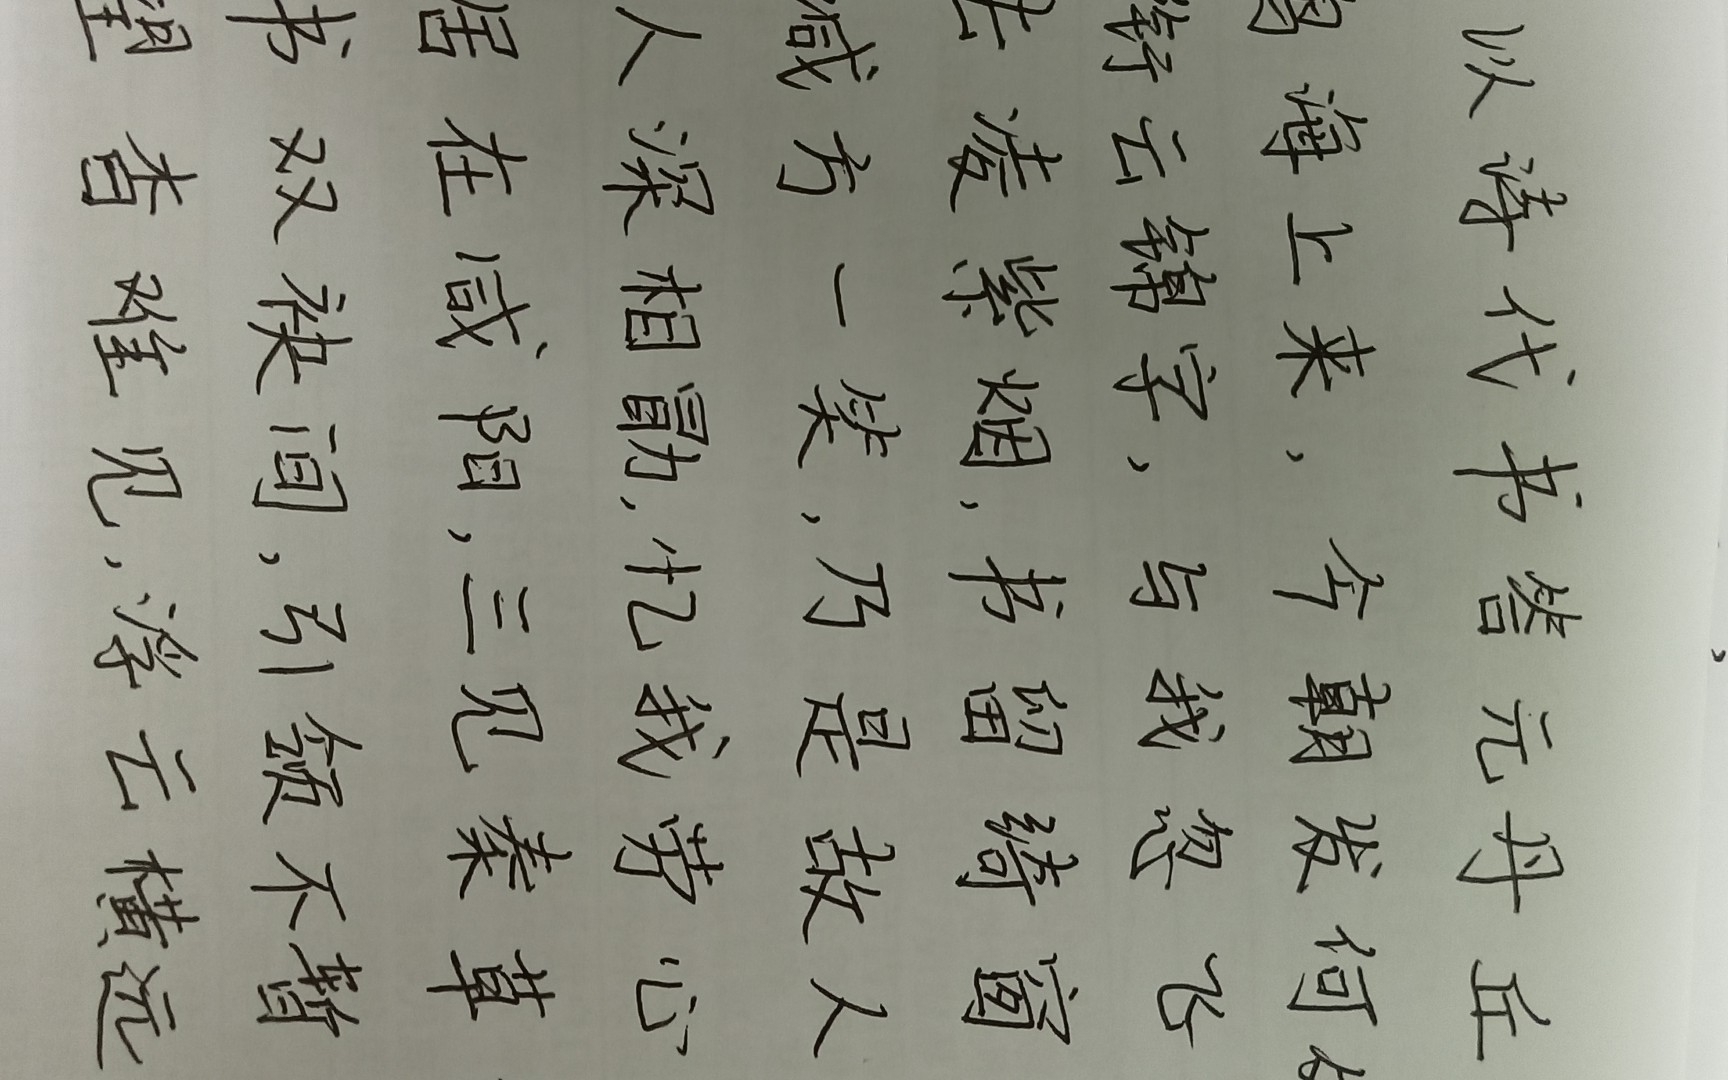 以诗代书答元丹丘
海上来,今朝发何
衔云锦字,与我忽飞
去凌紫烟,书留绮窗
缄方一笑,乃是故人
人深相勖,忆我劳心
居在咸阳,三见秦草
书双袂间,引领不暂
望杳难见,浮云横远